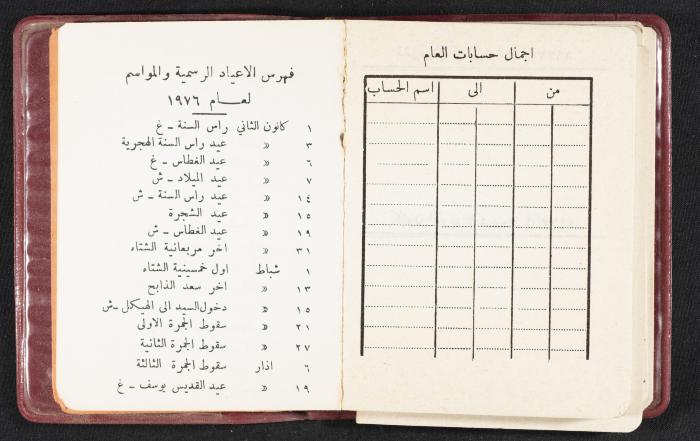 اجمال حسابات العام
من الى اسم الحساب
فهرس الاعياد الرسمية والمواسم
لعـام ١٩٧٦
١ كانون الثاني راس السنة ـ غ
٣ » عيد راس السنة الهجرية
٦ » عيد الغطاس ـ غ
٧ » عيد الميلاد ـ ش
١٤ » عيد راس السنة ـ ش
١٥ » عيد الشجرة
١٩ » عيد الغطاس ـ ش
٣١ » اخر مربعانية الشتاء
١ شباط اول خمسينية الشتاء
١٣ » اخر سعد الذابح
١٥ » دخول السيد الى الهيكل ـ ش
٢١ » سقوط الجمرة الاولى
٢٧ » سقوط الجمرة الثانية
٦ اذار سقوط الجمرة الثالثة
١٩ » عيد القديس يوسف ـ غ